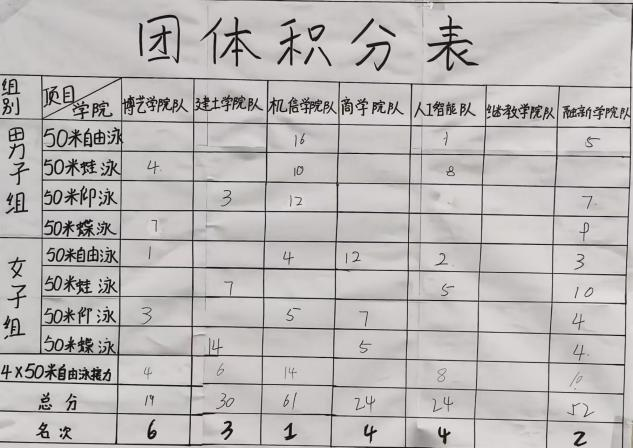 团体积分表
组别 项目 学院 博艺学院队 建土学院队 机信学院队 商学院队 人工智能队 继教学院队 融新学院队
男子组
50米自由泳 16 1 5
50米蛙泳 4 10 8
50米仰泳 3 12 7
50米蝶泳 7
女子组
50米自由泳 1 4 12 2 3
50米蛙泳 7 5 10
50米仰泳 3 5 7 4
50米蝶泳 14 5 4
4×50米自由泳接力 4 6 14 8 10
总分 19 30 61 24 24 52
名次 6 3 1 4 4 2